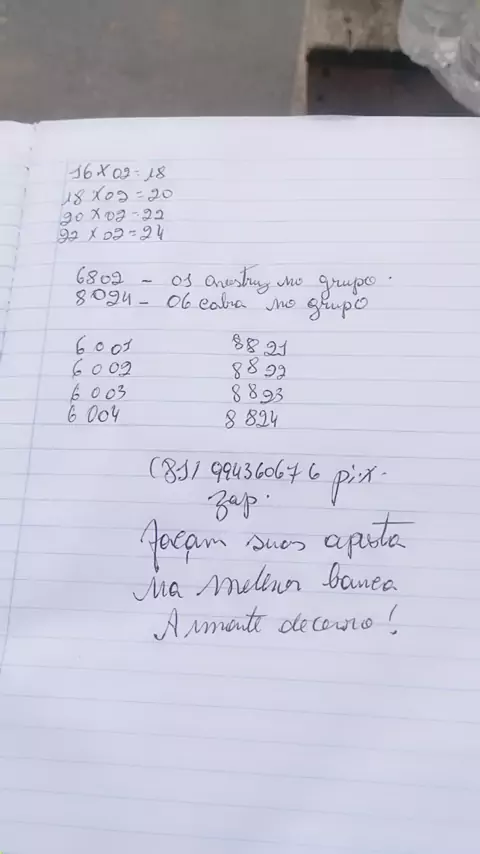 16 x 02 = 18
18 x 02 = 20
20 x 02 = 22
22 x 02 = 24
6802 - 01 avestruz no grupo.
8024 - 06 cabra no grupo
6001 8821
6002 8822
6003 8823
6004 8824
(81) 994360676 pix.
zap.
façam suas aposta
na melhor banca
A mente de